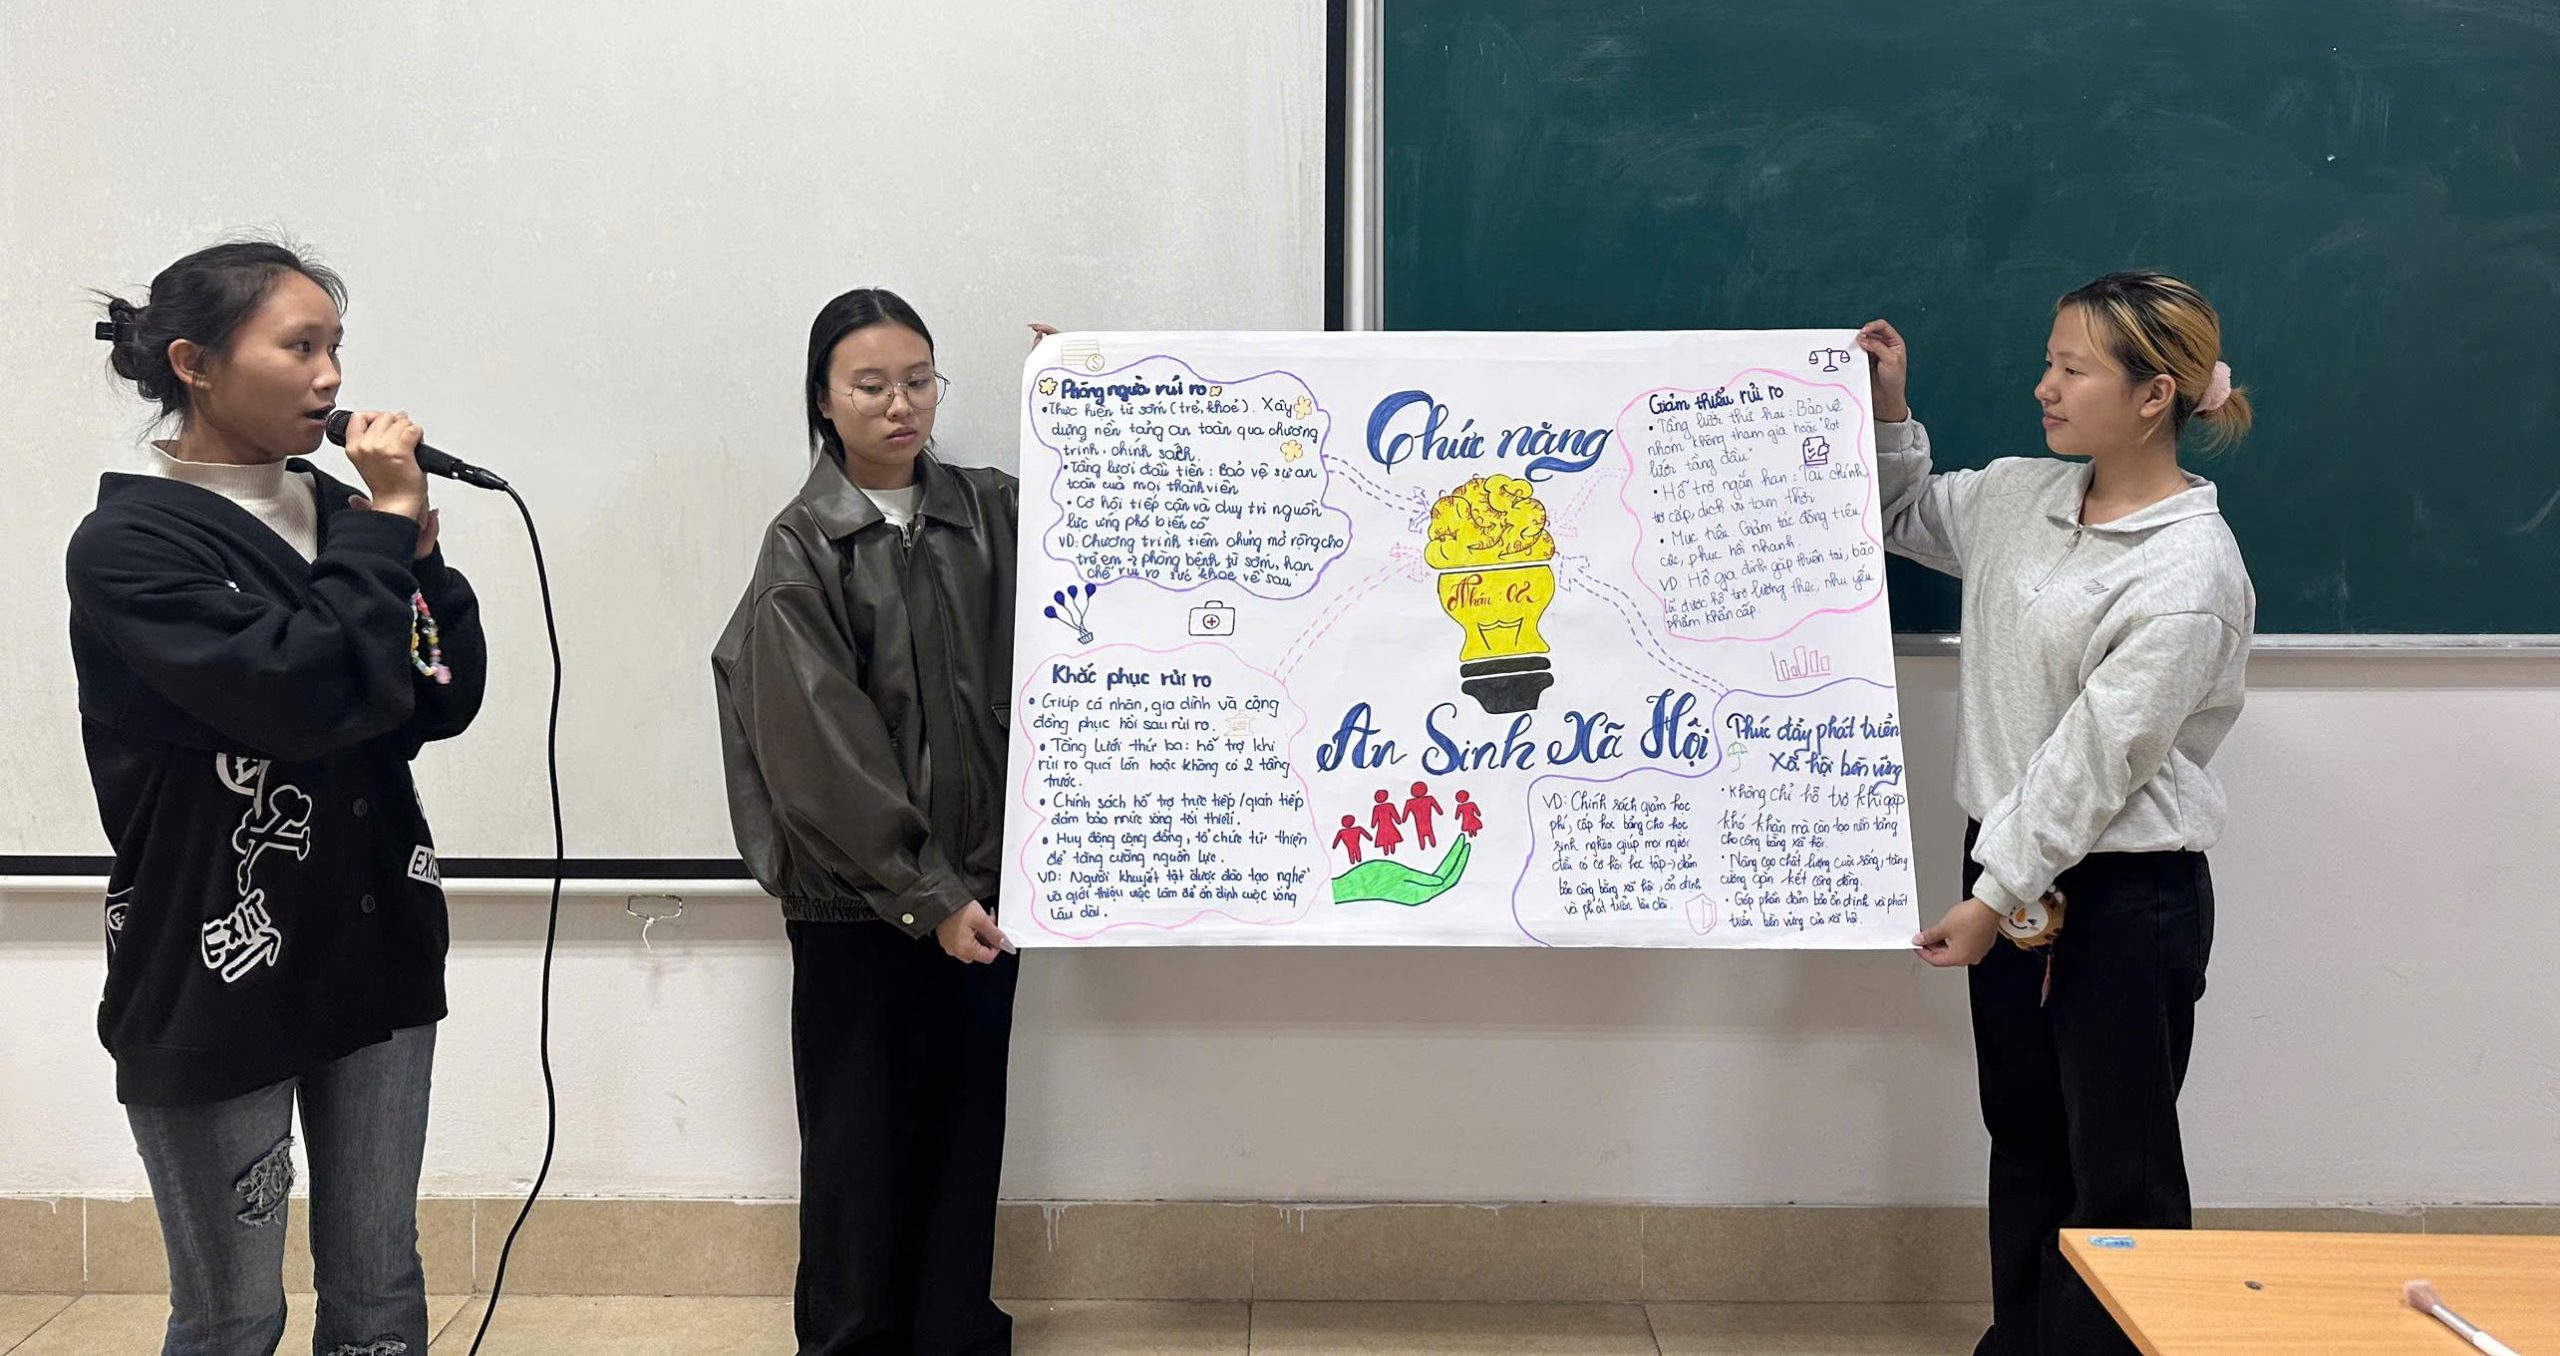 Chức năng
An Sinh Xã Hội
Phòng ngừa rủi ro
• Thực hiện từ sớm (trẻ, khoẻ). Xây
dựng nền tảng an toàn qua chương
trình, chính sách.
• Tầng lưới đầu tiên: Bảo vệ sự an
toàn của mọi thành viên
• Cơ hội tiếp cận và duy trì nguồn
lực ứng phó biến cố
VD: Chương trình tiêm chủng mở rộng cho
trẻ em → phòng bệnh từ sớm, hạn
chế rủi ro sức khoẻ về sau
Giảm thiểu rủi ro
• Tầng lưới thứ hai: Bảo vệ
nhóm không tham gia hoặc "lọt
lưới tầng đầu"
• Hỗ trợ ngắn hạn: Tài chính,
trợ cấp, dịch vụ tạm thời
• Mục tiêu: Giảm tác động tiêu
cực, phục hồi nhanh.
VD: Hộ gia đình gặp thiên tai, bão
lũ được hỗ trợ lương thực, nhu yếu
phẩm khẩn cấp
Khắc phục rủi ro
• Giúp cá nhân, gia đình và cộng
đồng phục hồi sau rủi ro.
• Tầng lưới thứ ba: hỗ trợ khi
rủi ro quá lớn hoặc không có 2 tầng
trước.
• Chính sách hỗ trợ trực tiếp/gián tiếp
đảm bảo mức sống tối thiểu.
• Huy động cộng đồng, tổ chức từ thiện
để tăng cường nguồn lực.
VD: Người khuyết tật được đào tạo nghề
và giới thiệu việc làm để ổn định cuộc sống
lâu dài.
Thúc đẩy phát triển
Xã hội bền vững
• Không chỉ hỗ trợ khi gặp
khó khăn mà còn tạo nền tảng
cho công bằng xã hội.
• Nâng cao chất lượng cuộc sống, tăng
cường gắn kết cộng đồng.
• Góp phần đảm bảo ổn định và phát
triển bền vững của xã hội.
VD: Chính sách giảm học
phí, cấp học bổng cho học
sinh nghèo giúp mọi người
đều có cơ hội học tập → đảm
bảo công bằng xã hội, ổn định
và phát triển lâu dài.
EXIT